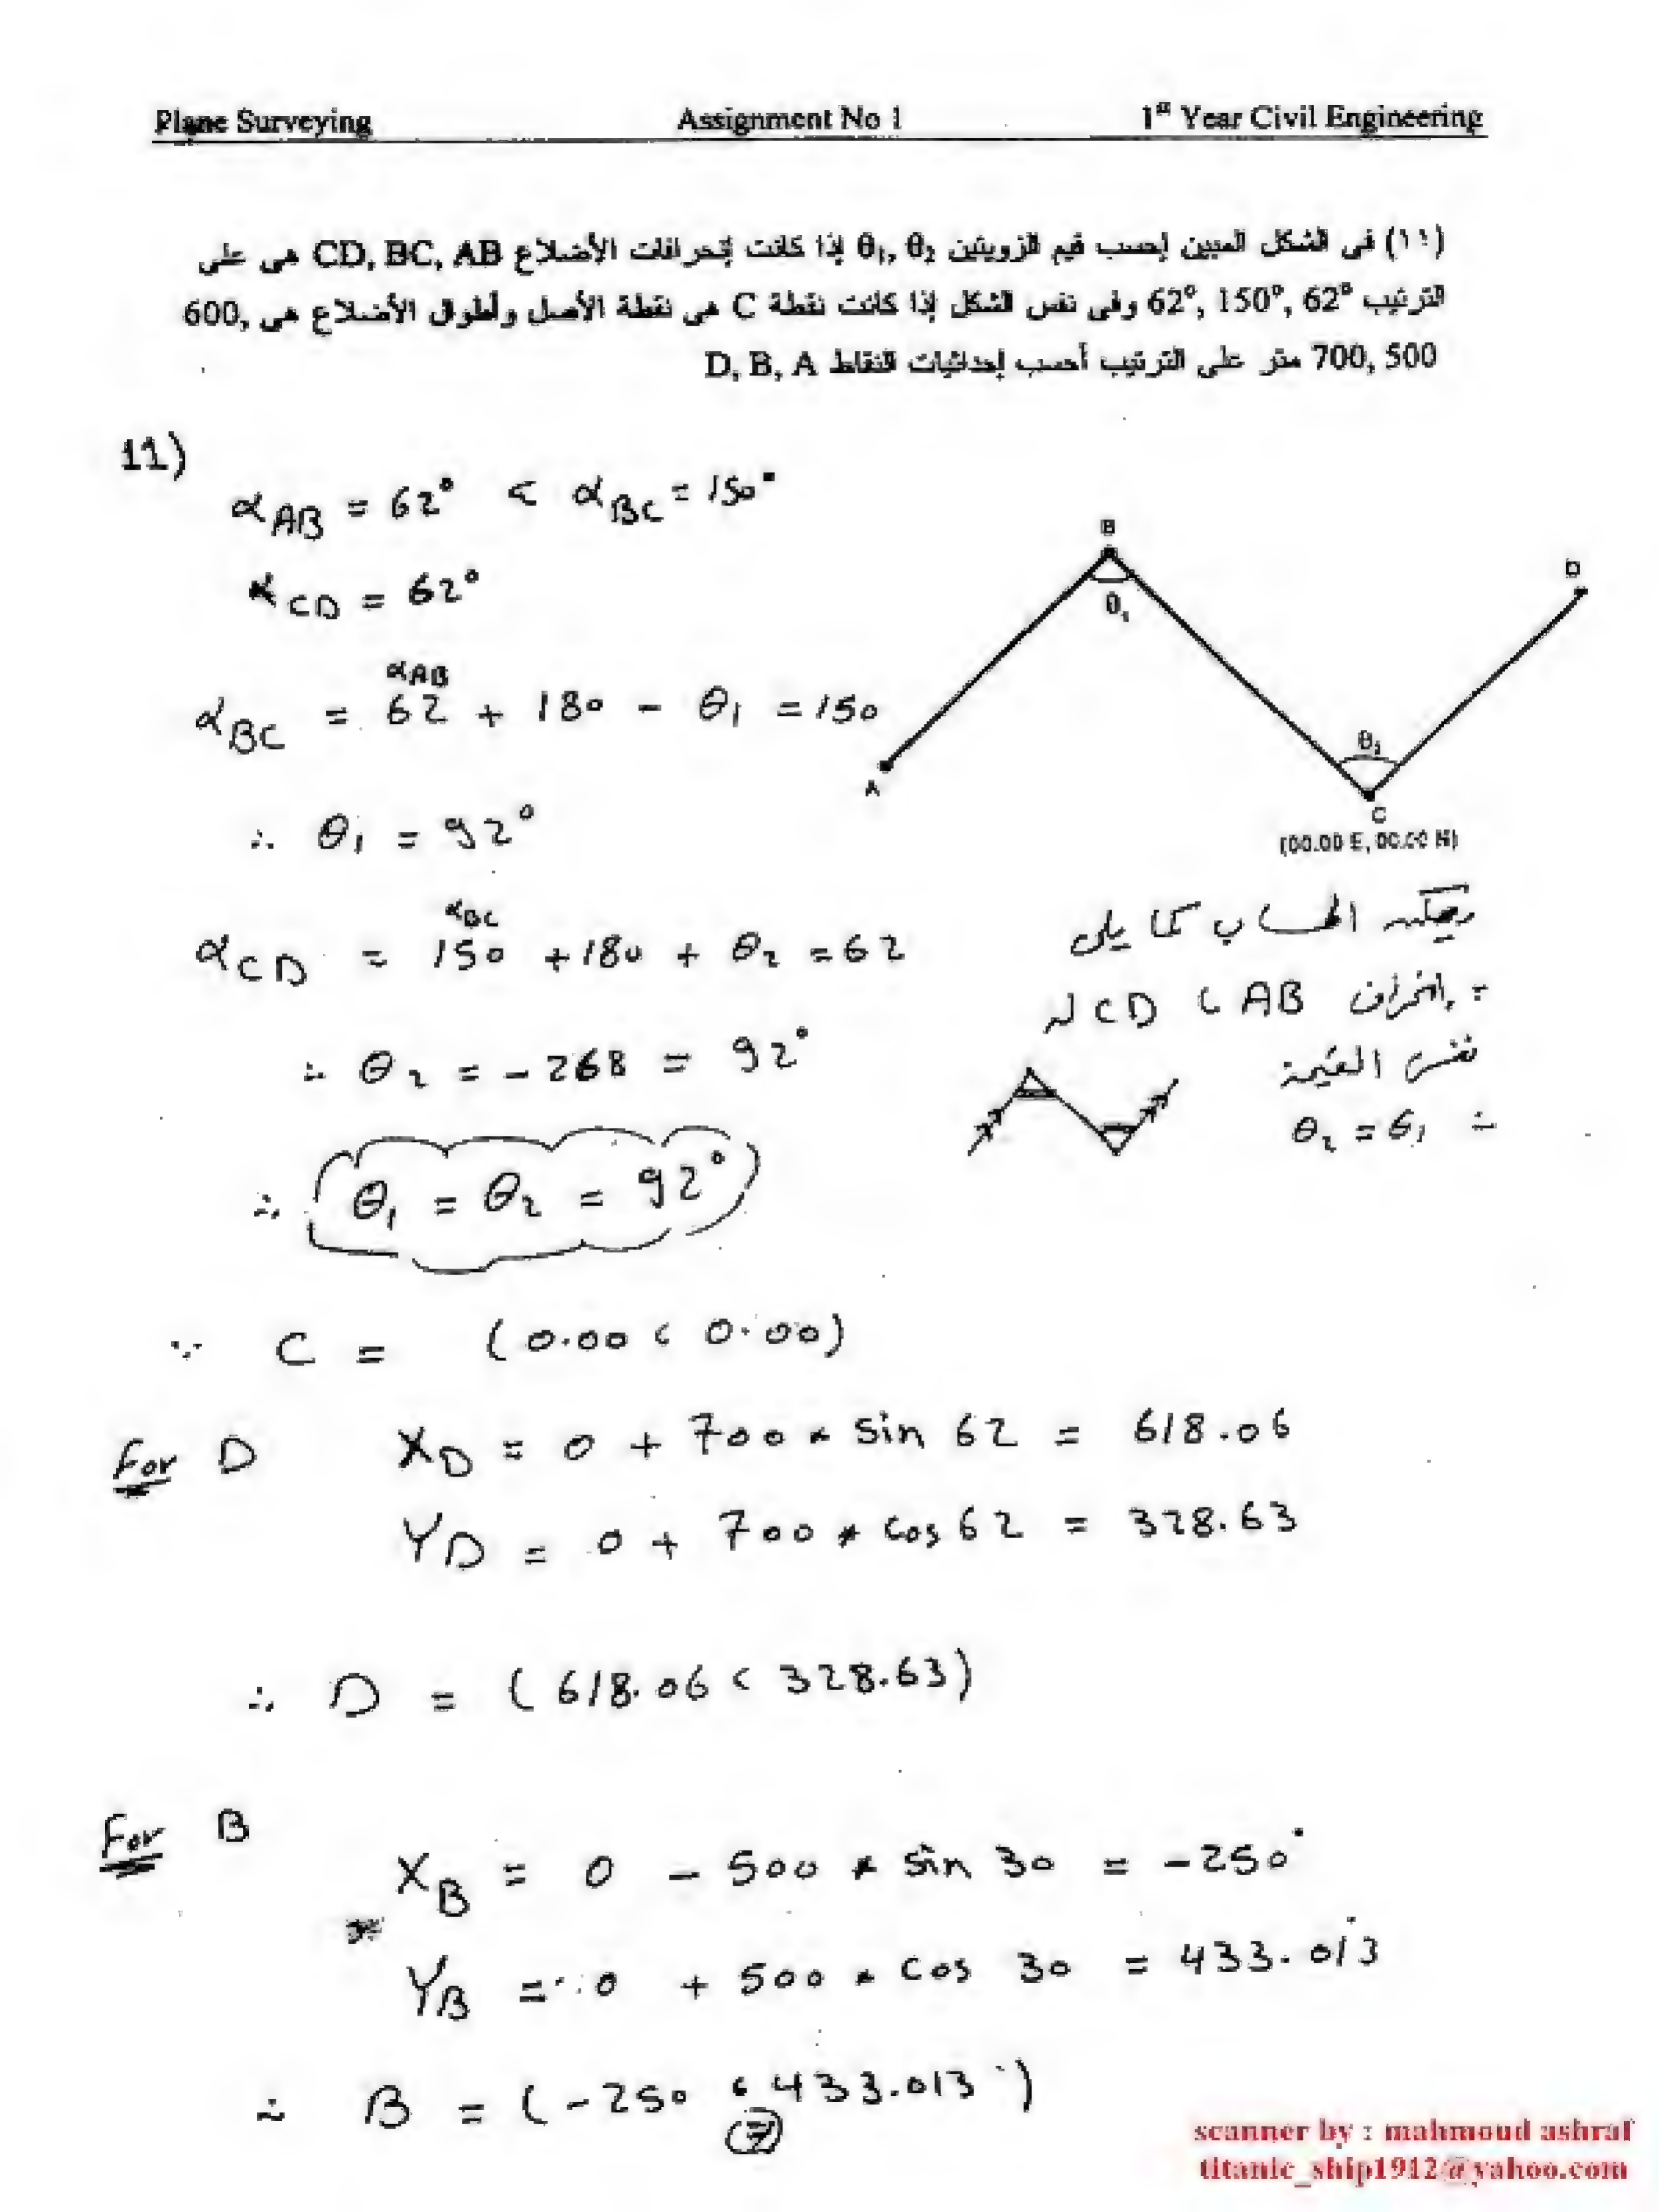 Plane Surveying Assignment No 1 1st Year Civil Engineering
(١١) فى الشكل المبين إحسب قيم الزويتين θ₁, θ₂ إذا كانت إنحرافات الأضلاع CD, BC, AB هى على
الترتيب 62º, 150º, 62º وفى نفس الشكل إذا كانت نقطة C هى نقطة الأصل وأطوال الأضلاع هى 600,
700, 500 متر على الترتيب أحسب إحداثيات النقاط D, B, A
11)
α AB = 62° ، α BC = 150°
α CD = 62°
α AB
α BC = 62 + 180 - θ₁ = 150
∴ θ₁ = 92°
α BC
α CD = 150 + 180 + θ₂ = 62
∴ θ₂ = - 268 = 92°
∴ θ₁ = θ₂ = 92°
B
θ₁
D
A
θ₂
C
(00.00 E, 00.00 N)
ويمكنه الحساب كما يلى
∵ إنحراف AB ، CD له
نفس القيمة
∴ θ₂ = θ₁
∵ C = (0.00 ، 0.00)
For D X D = 0 + 700 * sin 62 = 618.06
Y D = 0 + 700 * cos 62 = 328.63
∴ D = (618.06 ، 328.63)
For B
X B = 0 - 500 * sin 30 = -250
Y B = 0 + 500 * cos 30 = 433.013
∴ B = (-250 ، 433.013)
7
scanner by : mahmoud ashraf
titanic_ship1912@yahoo.com